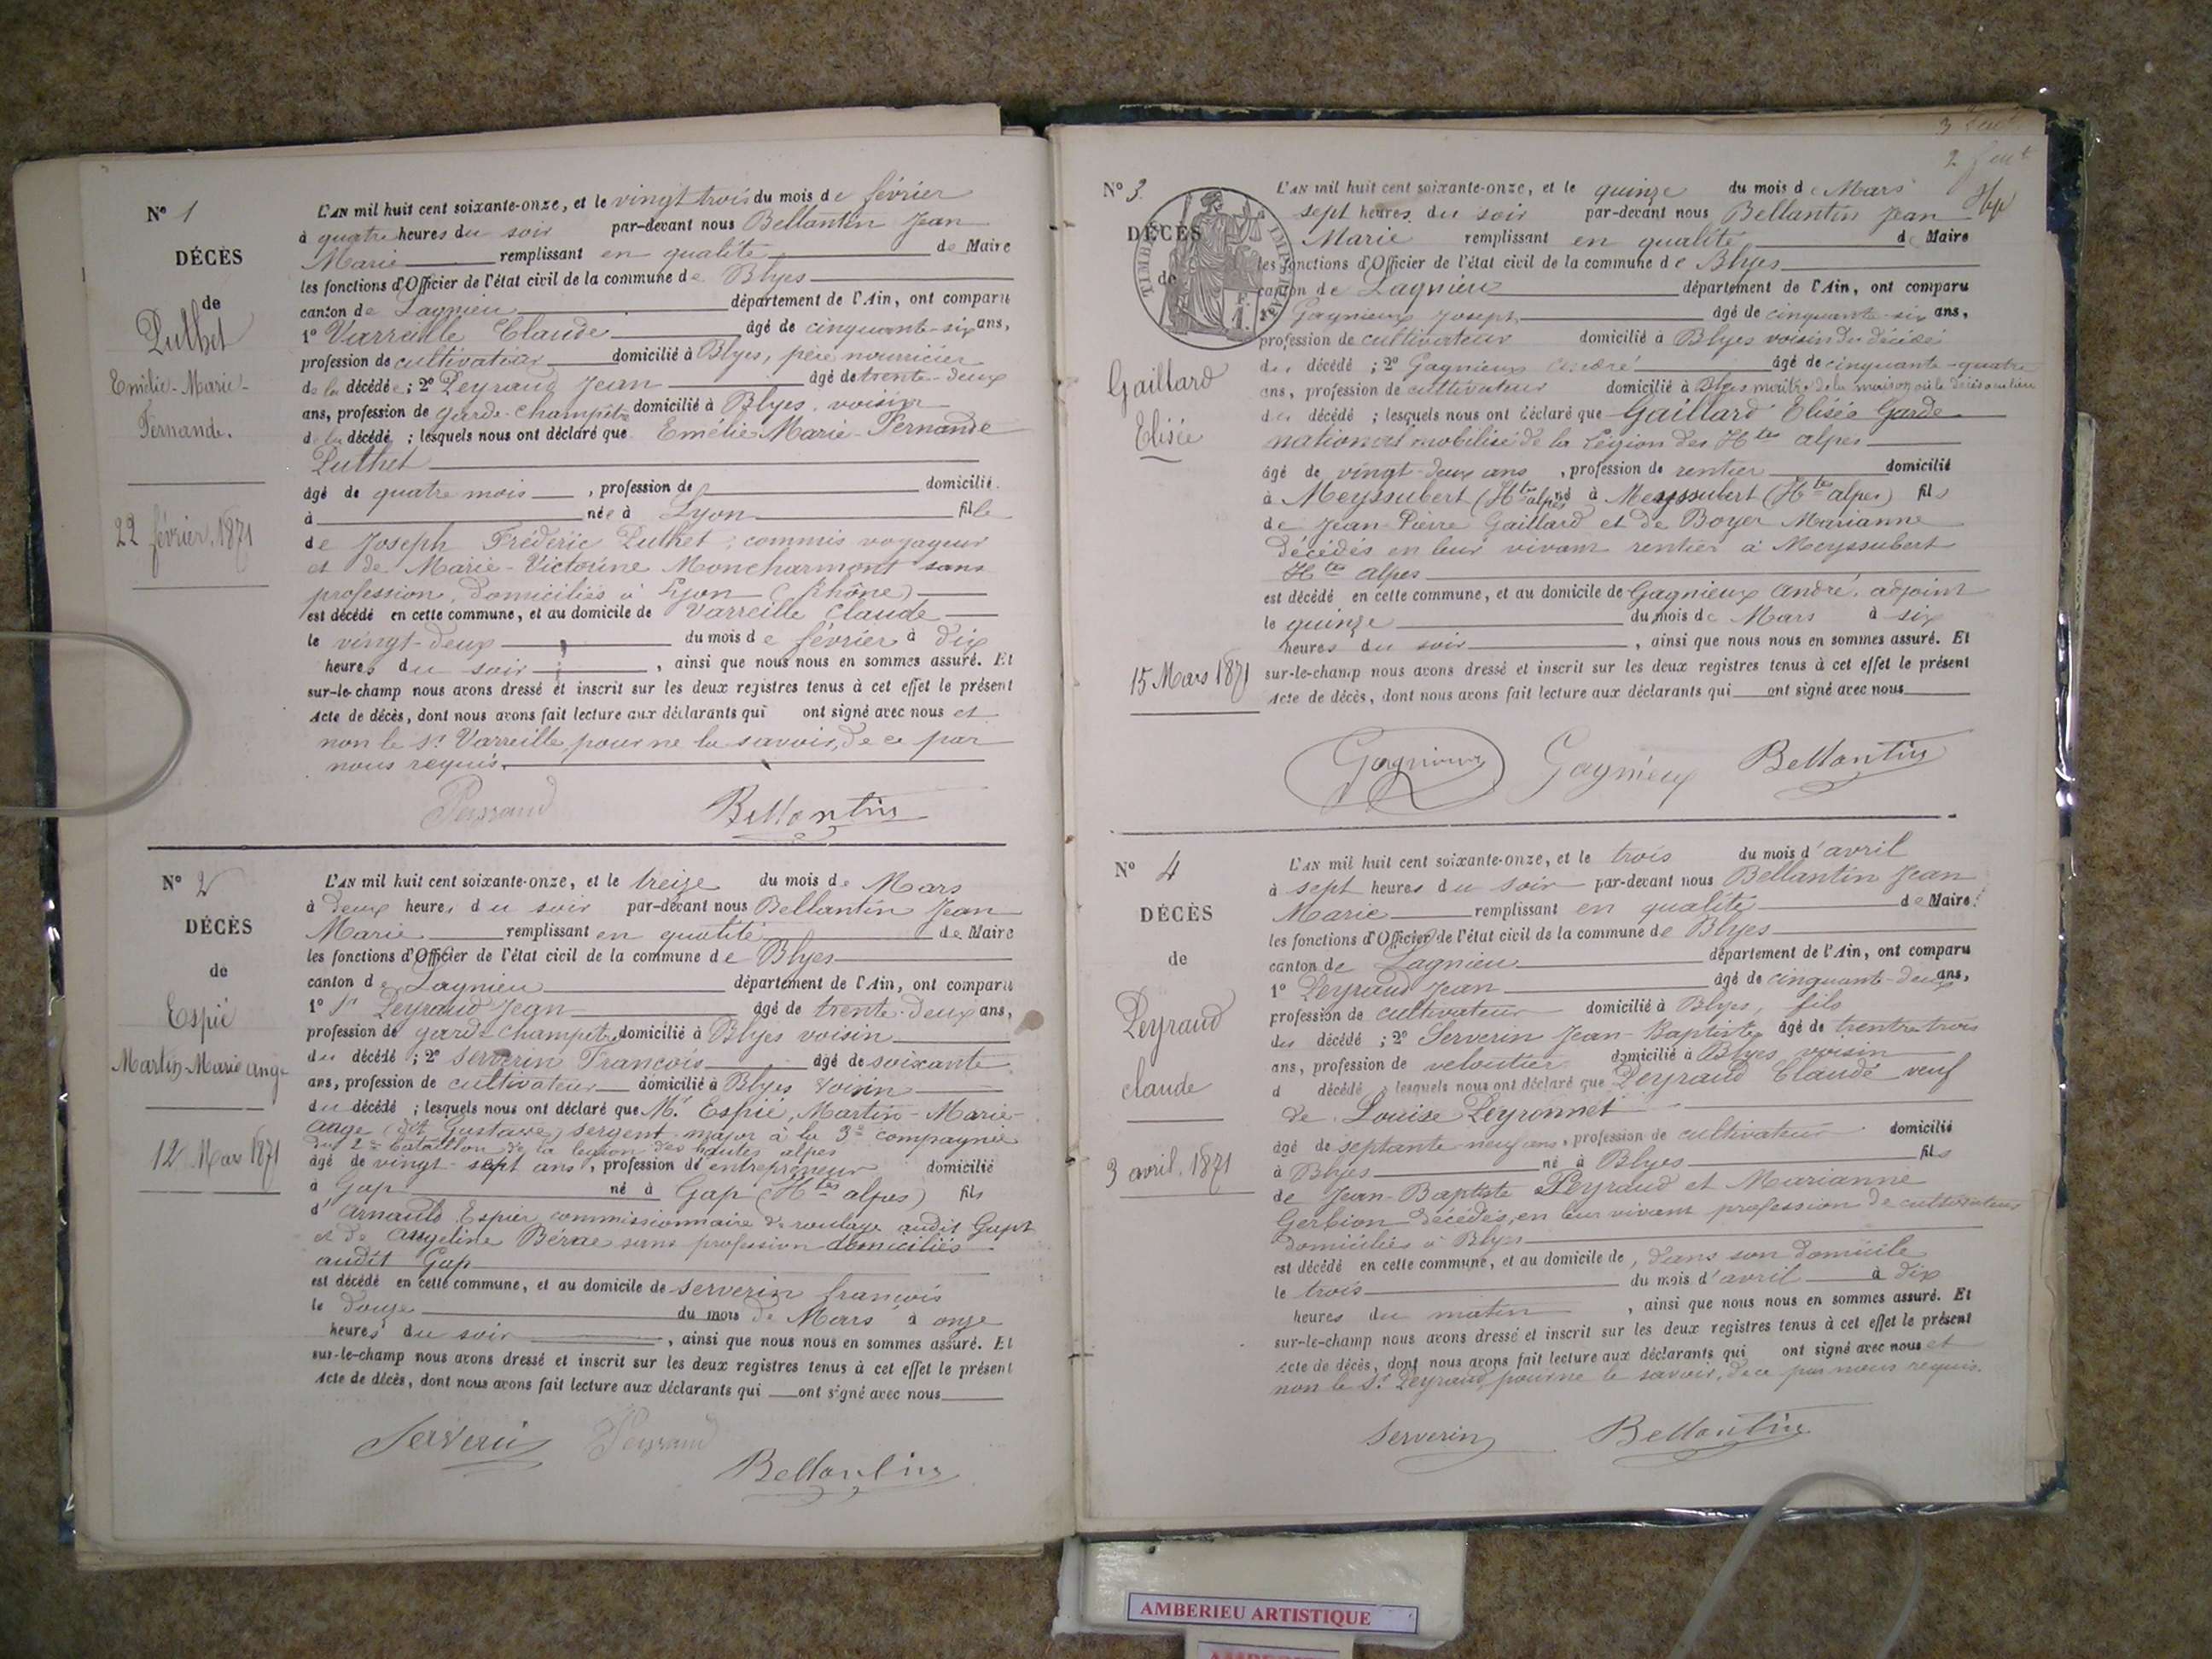 N° 1
DÉCÈS
de
Puthet
Emélie-Marie-
Fernande.
22 février 1871
L'AN mil huit cent soixante-onze, et le vingt trois du mois de février
à quatre heures du soir par-devant nous Bellantin Jean
Marie remplissant en qualité de Maire
les fonctions d'Officier de l'état civil de la commune de Blyes
canton de Lagnieu département de l'Ain, ont comparu
1° Varreille Claude âgé de cinquante-six ans,
profession de cultivateur domicilié à Blyes, père nourricier
de la décédée ; 2° Peyraud Jean âgé de trente-deux
ans, profession de garde-champêtre domicilié à Blyes, voisin
de la décédé ; lesquels nous ont déclaré que Emélie Marie-Fernande
Puthet
âgé de quatre mois , profession de domicilié
à née à Lyon fille
de Joseph Fréderic Puthet, commis voyageur
et de Marie-Victorine Moncharmont sans
profession, domiciliés à Lyon (Rhône)
est décédé en cette commune, et au domicile de Varreille Claude
le vingt-deux du mois de février à dix
heures du soir , ainsi que nous nous en sommes assuré. Et
sur-le-champ nous avons dressé et inscrit sur les deux registres tenus à cet effet le présent
Acte de décès, dont nous avons fait lecture aux déclarants qui ont signé avec nous et
non le Sr Varreille, pour ne le savoir, de ce par
nous requis.
Peyraud Bellantin
N° 2
DÉCÈS
de
Espié
Martin-Marie ange
12 Mars 1871
L'AN mil huit cent soixante-onze, et le treize du mois de Mars
à deux heures du soir par-devant nous Bellantin Jean
Marie remplissant en qualité de Maire
les fonctions d'Officier de l'état civil de la commune de Blyes
canton de Lagnieu département de l'Ain, ont comparu
1° Sr Peyraud Jean âgé de trente-deux ans,
profession de garde champêtre domicilié à Blyes voisin
du décédé ; 2° Serverin François âgé de soixante
ans, profession de cultivateur domicilié à Blyes voisin
du décédé ; lesquels nous ont déclaré que Mr Espié, Martin-Marie-
ange (dit Gustave) sergent major à la 3e compagnie
du 2e bataillon de la legion des hautes alpes
âgé de vingt-sept ans, profession de entrepreneur domicilié
à Gap né à Gap (Htes alpes) fils
d'arnauld Espier commissionnaire de roulage audit Gap
et de angeline Bérae sans profession domiciliés
audit Gap
est décédé en cette commune, et au domicile de Serverin françois
le douze du mois de Mars à onze
heures du soir , ainsi que nous nous en sommes assuré. Et
sur-le-champ nous avons dressé et inscrit sur les deux registres tenus à cet effet le présent
Acte de décès, dont nous avons fait lecture aux déclarants qui ont signé avec nous
Serverin Peyraud
Bellantin
3
2
N° 3
DÉCÈS
de
TIMBRE IMPERIAL
Gaillard
Elisée
15 Mars 1871
L'AN mil huit cent soixante-onze, et le quinze du mois de Mars
sept heures du soir par-devant nous Bellantin Jean
Marie remplissant en qualité de Maire
les fonctions d'Officier de l'état civil de la commune de Blyes
canton de Lagnieu département de l'Ain, ont comparu
1° Gagnieux Joseph âgé de cinquante-six ans,
profession de cultivateur domicilié à Blyes voisin du décédé
du décédé ; 2° Gagnieux André âgé de cinquante-quatre
ans, profession de cultivateur domicilié à Blyes maître de la maison où le décès a eu lieu
du décédé ; lesquels nous ont déclaré que Gaillard Elisée Garde
national mobilisé de la Légion des Htes alpes
âgé de vingt-deux ans , profession de rentier domicilié
à Meyssubert (Htes alpes) né à Meyssubert (Htes alpes) fils
de Jean-Pierre Gaillard et de Boyer Marianne
décédés en leur vivant rentier à Meyssubert
Htes alpes
est décédé en cette commune, et au domicile de Gagnieux André, adjoint
le quinze du mois de Mars à six
heures du soir , ainsi que nous nous en sommes assuré. Et
sur-le-champ nous avons dressé et inscrit sur les deux registres tenus à cet effet le présent
Acte de décès, dont nous avons fait lecture aux déclarants qui ont signé avec nous
Gagnieux Gagnieux Bellantin
N° 4
DÉCÈS
de
Peyraud
claude
3 avril 1871
L'AN mil huit cent soixante-onze, et le trois du mois d'avril
à sept heures du soir par-devant nous Bellantin Jean
Marie remplissant en qualité de Maire
les fonctions d'Officier de l'état civil de la commune de Blyes
canton de Lagnieu département de l'Ain, ont comparu
1° Peyraud Jean âgé de cinquante-deux ans,
profession de cultivateur domicilié à Blyes, fils
du décédé ; 2° Serverin Jean-Baptiste âgé de trentre-trois
ans, profession de veloutier domicilié à Blyes voisin
d décédé ; lesquels nous ont déclaré que Peyraud Claude veuf
de Louise Peyronnet
âgé de septante neuf ans, profession de cultivateur domicilié
à Blyes né à Blyes fils
de Jean-Baptiste Peyraud et Marianne
Gerbion décédés, en leur vivant profession de cultivateurs
domiciliés à Blyes
est décédé en cette commune, et au domicile de , dans son domicile
le trois du mois d'avril à dix
heures du matin , ainsi que nous nous en sommes assuré. Et
sur-le-champ nous avons dressé et inscrit sur les deux registres tenus à cet effet le présent
Acte de décès, dont nous avons fait lecture aux déclarants qui ont signé avec nous et
non le Sr Peyraud, pour ne le savoir, de ce par nous requis.
Serverin Bellantin
AMBERIEU ARTISTIQUE